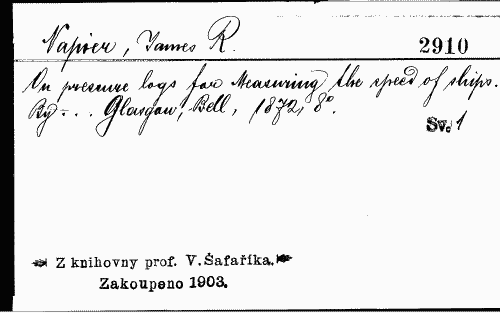 Napier, James R.
2910
On pressure logs for Measuring the speed of ships.
By . . . Glasgow, Bell, 1872, 8°.
Sv. 1
Z knihovny prof. V. Šafaříka.
Zakoupeno 1903.